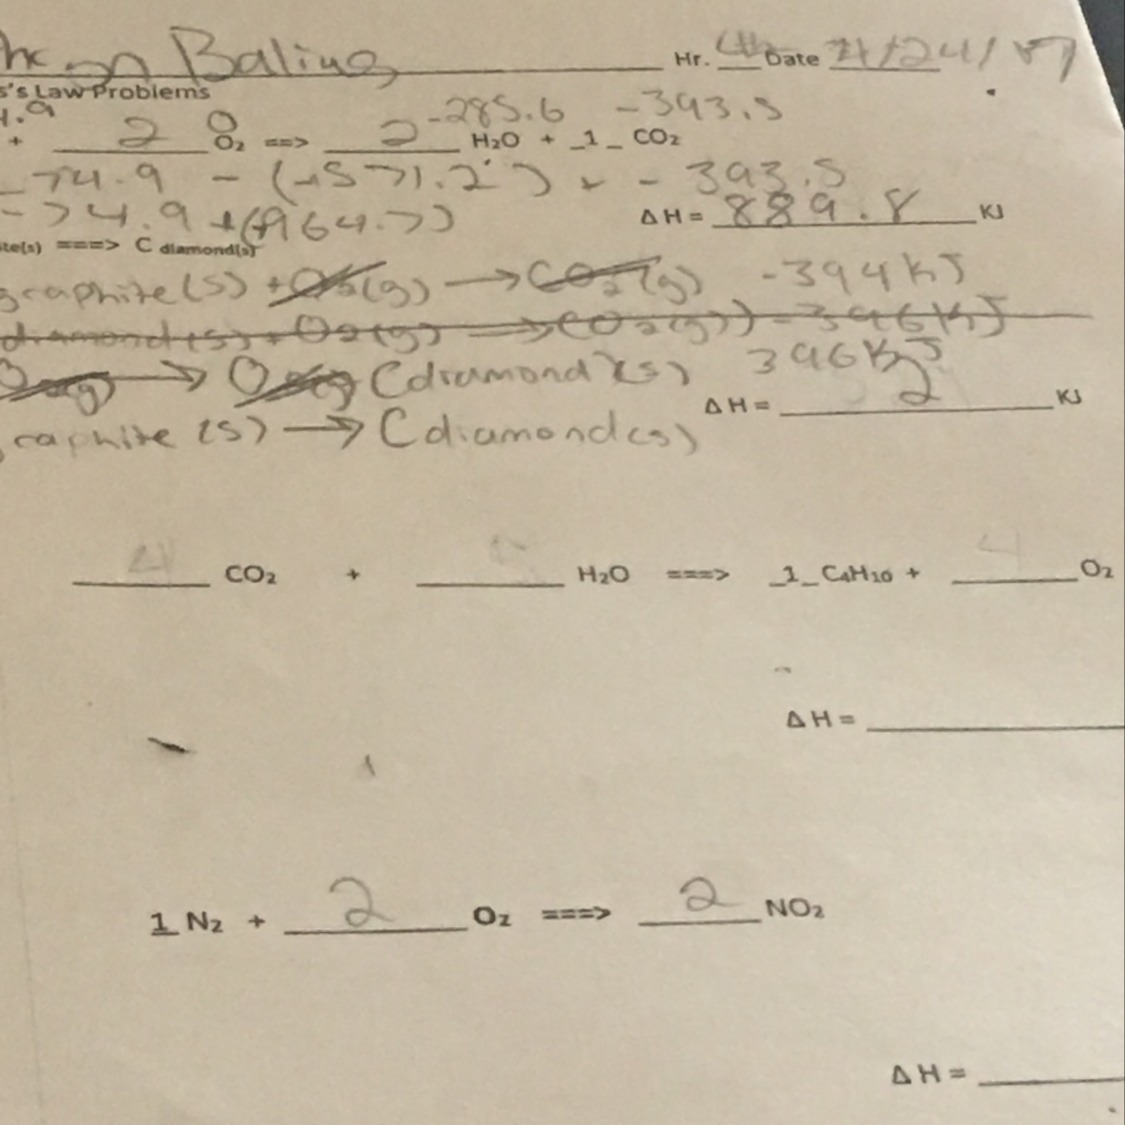 Baling Hr. 4th Date 4/24/17
s's Law Problems
4.9 -285.6 -393.5
+ 2 O₂ ==> 2 H₂O + _1_ CO₂
-74.9 - (-571.2) + - 393.5
-74.9 +(+964.7) ΔH = 889.8 KJ
ite(s) ===> C diamond(s)
graphite(s) + O₂(g) → CO₂(g) -394KJ
diamond(s) + O₂(g) → CO₂(g) - 396KJ
(g) → O₂(g) Cdiamond(s) 396KJ
ΔH = 2 KJ
raphite (s) → Cdiamond(s)
4 CO₂ + H₂O ===> _1_ C₄H₁₀ + O₂
ΔH =
1 N₂ + 2 O₂ ===> 2 NO₂
ΔH =